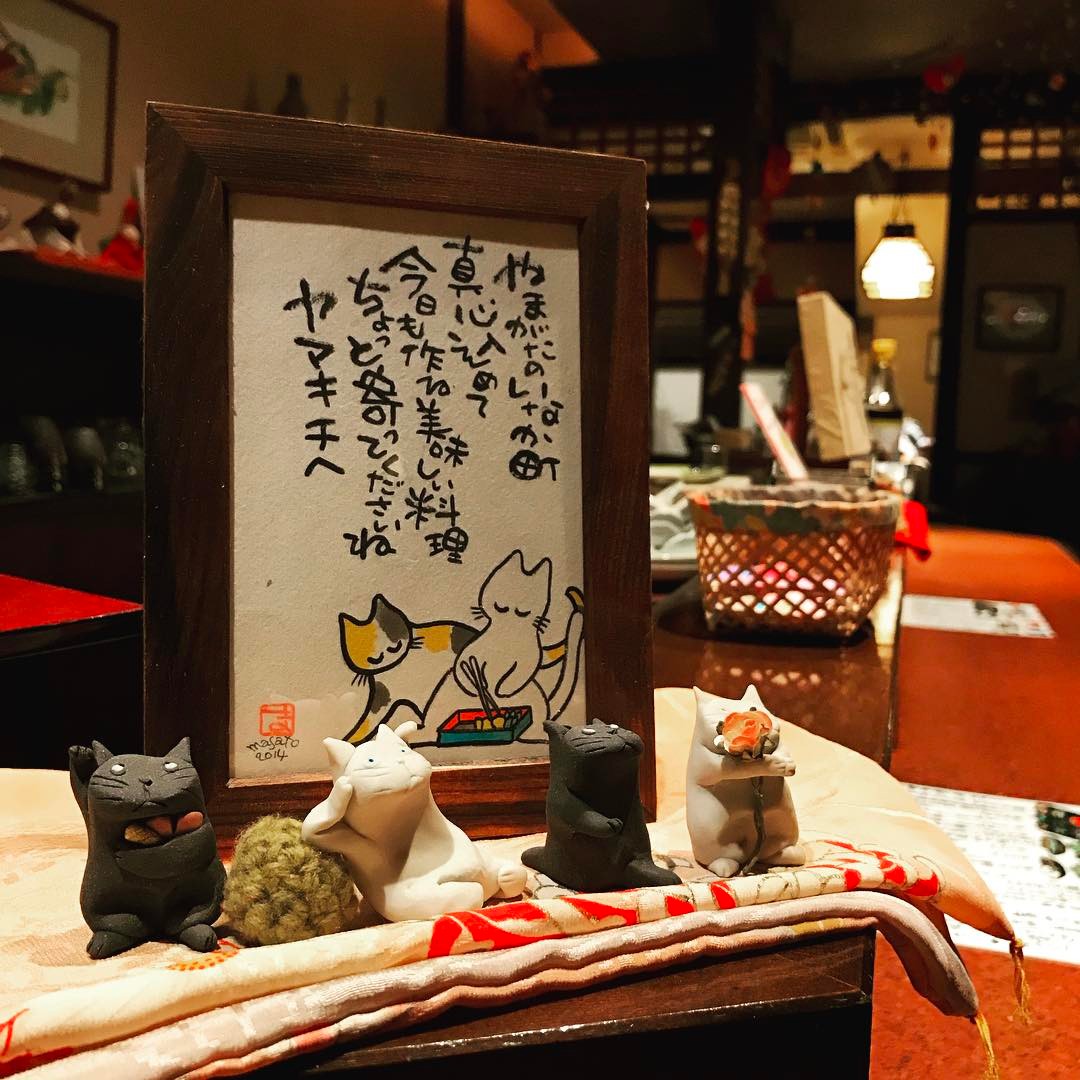 やまがたのいなか町
真心込めて
今日も作る美味しい料理
ちょっと寄ってくださいね
ヤマキチへ
masato
2014